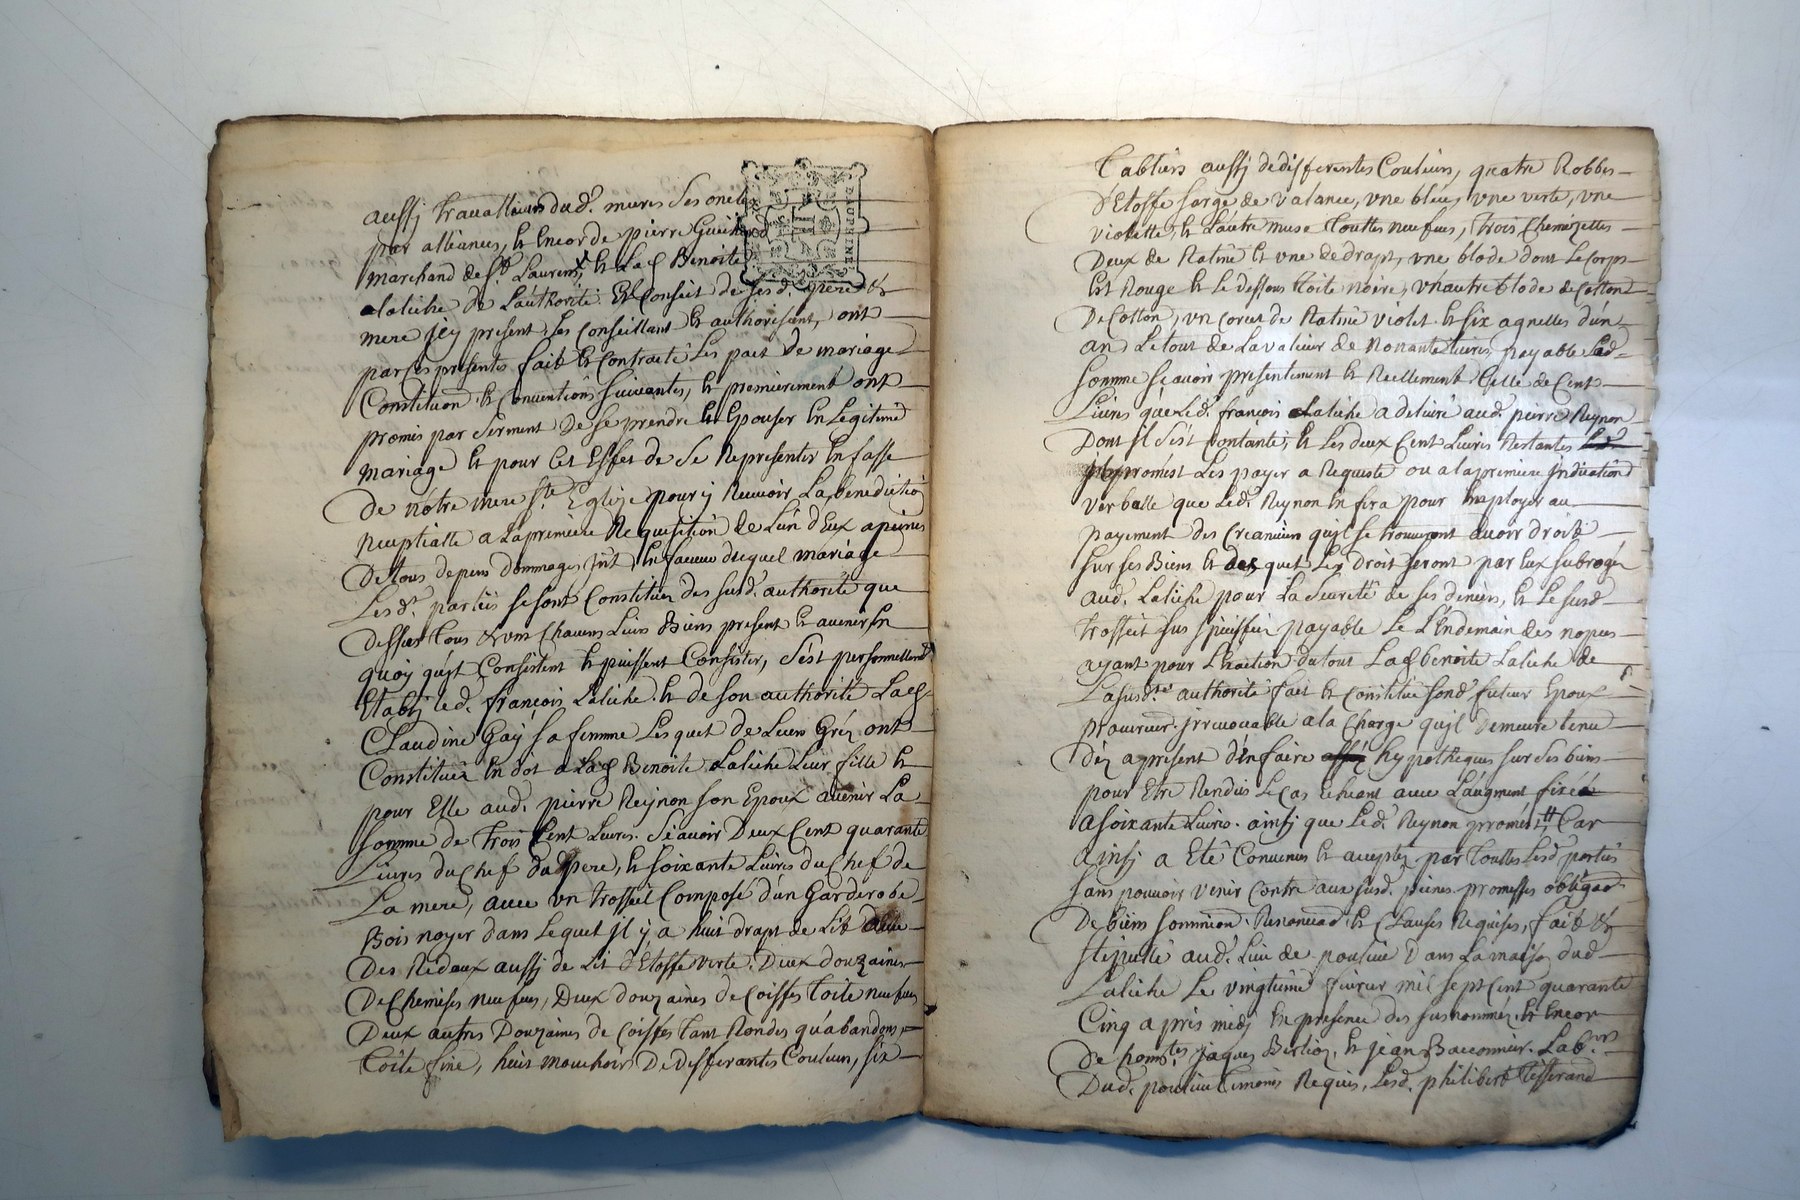 aussy travailleurs dud. mures ses oncles
par alliance, et encor de pierre Guichard
marchand de St. Laurens, et La q Benoite
Laliche de Lauthorité Et Conseit de sesd. pere et
mere jcy present Les Conseillant et authorisant, ont
par ces presentes fait et Contracté Les pact de mariage
Constitution et Conventions suivantes, et premierement ont
promis par serment De se prendre et Epouser En Legitime
mariage et pour Cet Effet de se Representer En fasse
De nôtre mere Ste. Eglize pour y Recevoir La benediction
Nuptialle a La premiere Requisition de L'un d'Eux a peines
De tous depens dommages jnt. En faveur duquel mariage
Lesd. parties se sont Constituer des susd. authorité que
Dessus Tous Et uns Chacuns Leurs Biens present et avenir En
quoy qu'jt Consistent et puissent Consister, s'est personnellemt
Etably led. françois Laliche et de son authorité La q
Claudine Gay sa femme Les quet de Leurs Gréz ont
Constituer En dot a La q Benoite Laliche Leur fille et
pour Elle aud. pierre Reynon son Epoux avenir La
somme de Trois Cent Livres. Scavoir Deux Cent quarante
Livres du Chef dud pere, et soixante Livres du Chef de
La mere, avec un trosseil Composé d'un Garderobe
Bois noyer dans Lequet jl y a huit drapt de Lit
Des Ridaux aussy de Lit d'Etoffe verte, Deux douzaines
De Chemises neufves, Deux douzaines de Coiffes toile neufves
Deux autres Douzaines de Coiffes Tant Rondes qu'abandons
toile fine, huit mouchoirs De differantes Couleurs, six
DAUPHINE
Tabliers aussy de differentes Couleurs, quatre Robbes
D'Etoffe sarge de Valance, une bleu, une verte, une
violette, et L'autre muse Touttes neufves, Trois Chemizettes
Deux de Ratine et une de drapt, une blode dont Le Corps
Est Rouge et Le dessous Toile noire, un autre blode de Cotton
De Cotton, un Corcet de Ratine violet et six agnelles d'un
an Le tout de La valleur de Nonante Livres payable Lad
somme scavoir presentement et Reellement Celle de Cent
Livres que Led. françois Laliche a delivré aud. pierre Reynon
Dont jl s'est Contanté, et Les deux Cent Livres Restantes
jl promest Les payer a Requiste ou a la premiere jndication
Verballe que Led. Reynon En fera pour Employer au
payement des Creanciers qu'jl se trouveront avoir droit
sur ses Biens et des quet Les Droit seront par Eux subrogés
aud. Laliche pour La Seureté de ses deniers, et Le susd
trosseit sus speciffié payable Le L'Endemain des nopces
ayant pour L'haction du tout La q benoite Laliche de
La susdte. authorité fait et Constitué sond. futur Epoux
procureur jrrevocable a la Charge qu'jl Demeure tenu
Déz apresent d'En faire hypotheques sur ses biens
pour Etre Rendus Le Cas Echeant avec L'augment fixéé
a soixante Livres. ainsy que Led. Reynon promest Car
ainsy a Eté Convenus et accepter par Touttes Lesd. parties
sans pouvoir venir Contre aux susd. peines promesses obligaon
De biens sommision Renonciaon et Clauses Requises, fait et
stipullé aud. Lieu de pouliue Dans La maison dud
Laliche Le vingtieme fevrier mil sept Cent quarante
Cinq apres medy En presence des susnommés et Encor
de homtes. jaques Berlioz, et jean Baconnier Labrs.
Dud. pouliue Temoins Requis, Lesd. philibert Tisserand